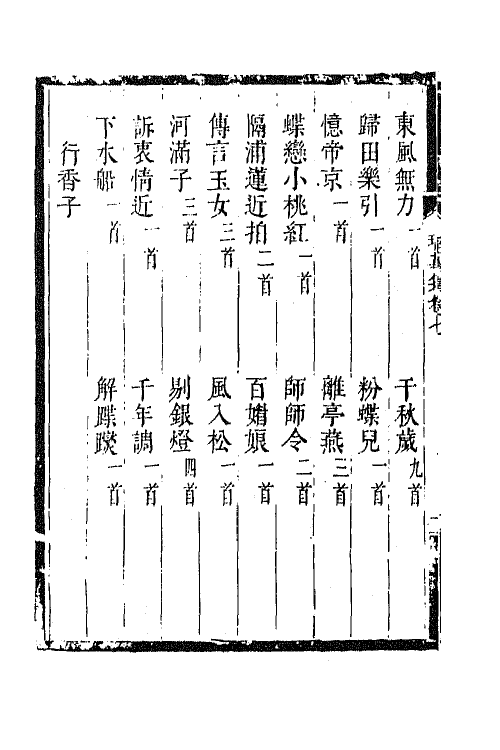 東風無力一首　千秋歲九首
歸田樂引一首　粉蝶兒一首
憶帝京一首　離亭燕三首
蝶戀小桃紅一首　師師令二首
隔浦蓮近拍二首　百媚娘一首
傳言玉女三首　風入松一首
河滿子三首　剔銀燈四首
訴衷情近一首　千年調一首
下水船一首　解蹀躞一首
行香子